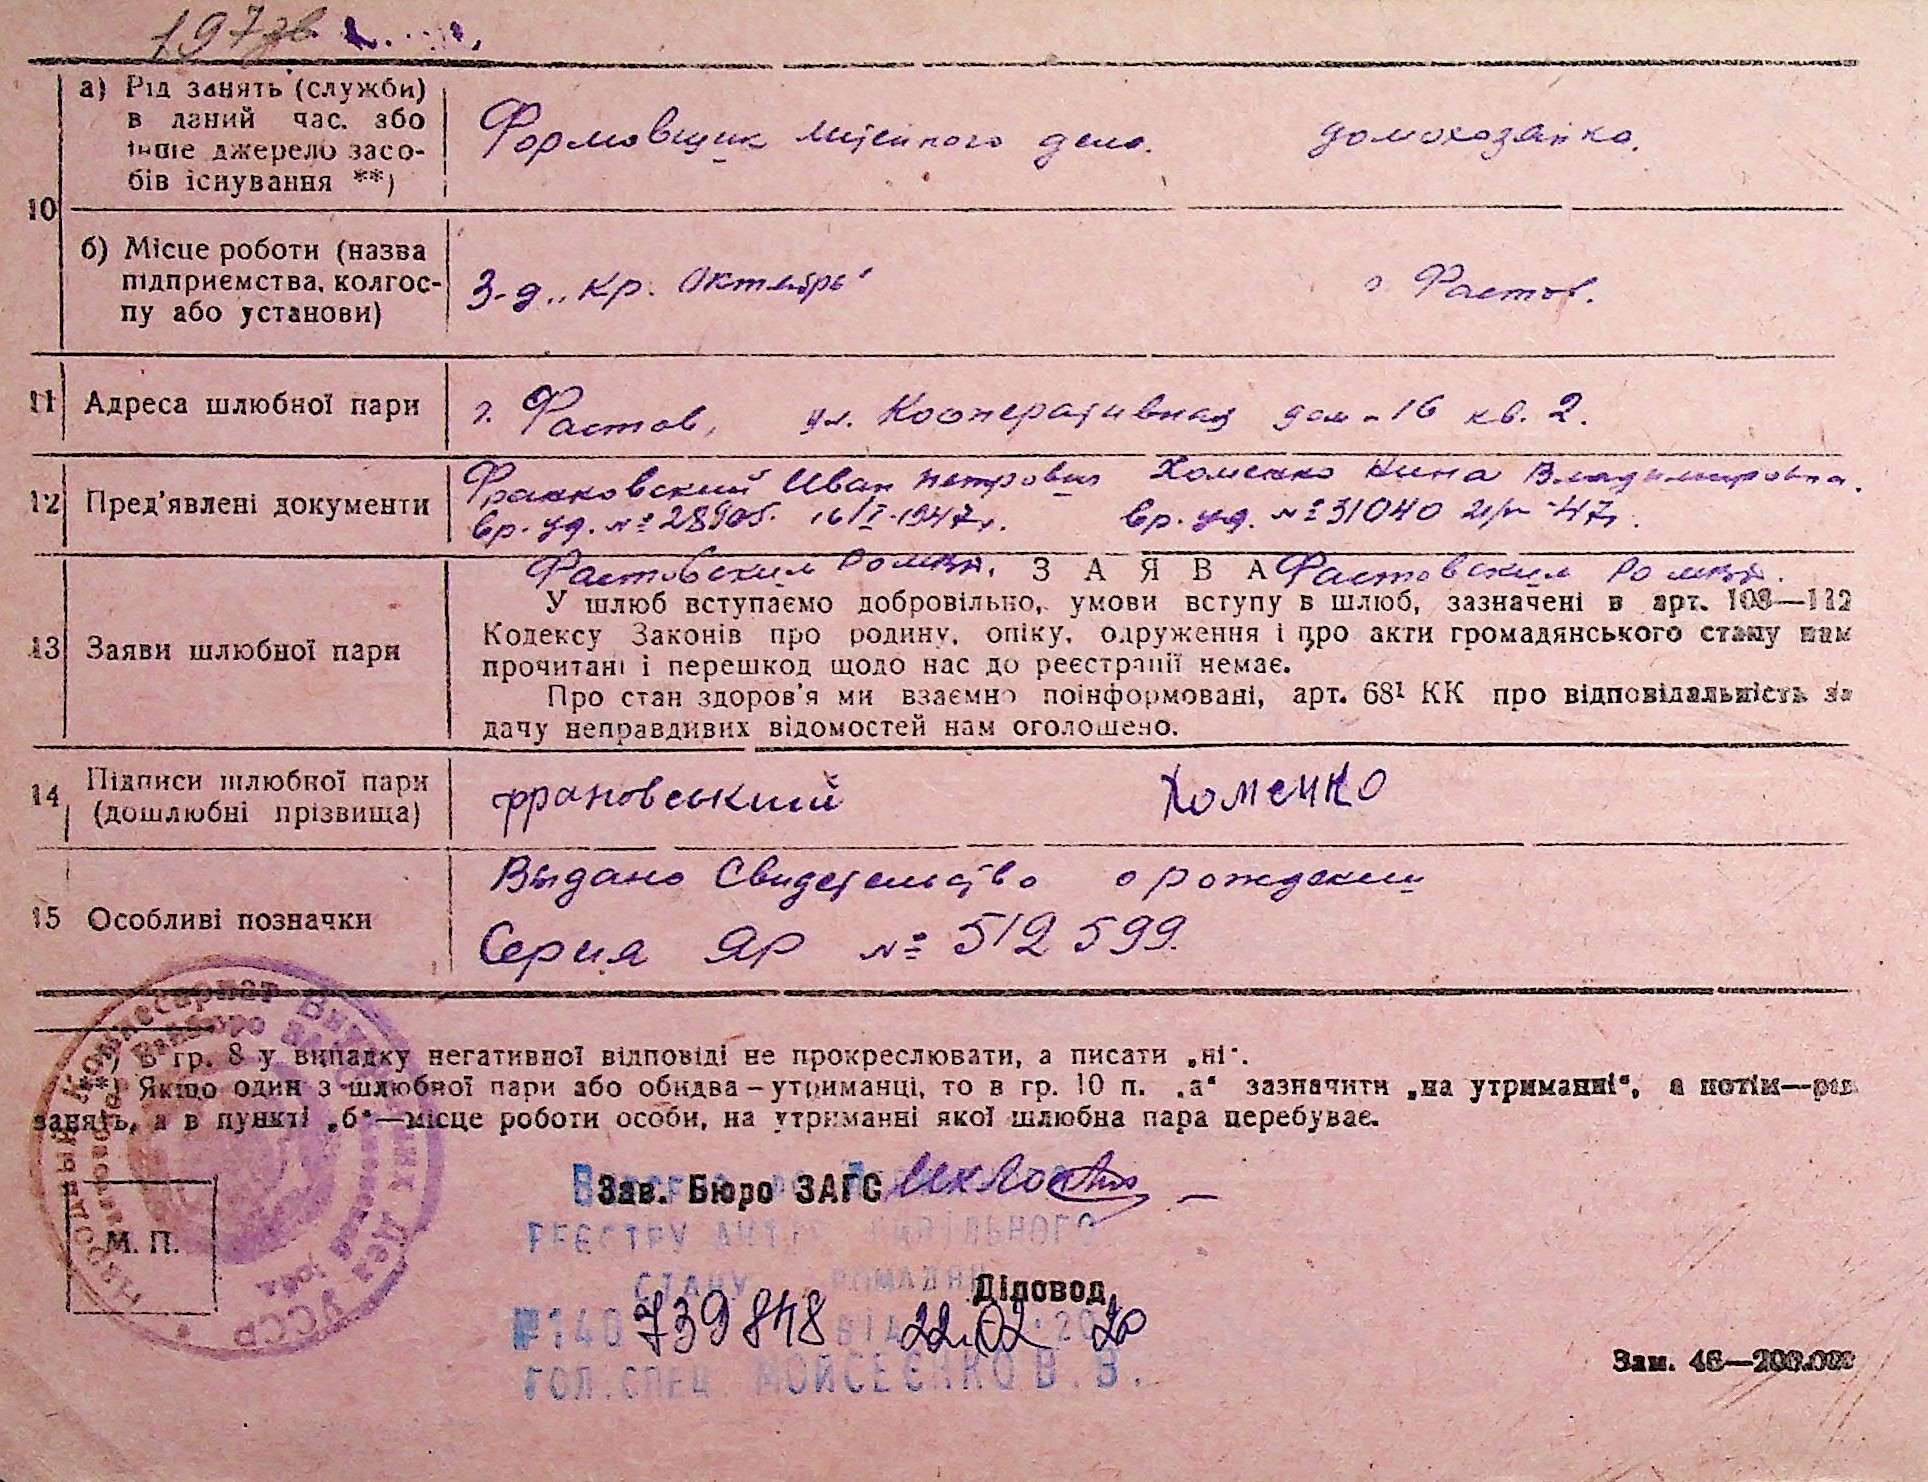 197зв.
10
а) Рід занять (служби)
в даний час, або
інше джерело засо-
бів існування **)
Формовщик литейного дела.
домохозяйка.
б) Місце роботи (назва
підприємства, колгос-
пу або установи)
З-д „Кр. Октябрь"
г. Фастов.
11
Адреса шлюбної пари
г. Фастов, ул. Кооперативная дом-16 кв. 2.
12
Пред'явлені документи
Иван Петрович Хоменко Нина Владимировна.
вр. уд. № 16/I-1947г. вр. уд. № 31040 47г.
Фастовским Фастовским
13
Заяви шлюбної пари
ЗАЯВА
У шлюб вступаємо добровільно, умови вступу в шлюб, зазначені в арт. 108—112
Кодексу Законів про родину, опіку, одруження і про акти громадянського стану нам
прочитані і перешкод щодо нас до реєстрації немає.
Про стан здоров'я ми взаємно поінформовані, арт. 68¹ КК про відповідальність за
дачу неправдивих відомостей нам оголошено.
14
Підписи шлюбної пари
(дошлюбні прізвища)
Хоменко
15
Особливі позначки
Выдано Свидетельство о рождении
Серия ЯР № 512599.
*) В гр. 8 у випадку негативної відповіді не прокреслювати, а писати „ні".
**) Якщо один з шлюбної пари або обидва – утриманці, то в гр. 10 п. „а" зазначити „на утриманні", а потім—рід
занять, а в пункті „б"—місце роботи особи, на утриманні якої шлюбна пара перебуває.
Народный Комиссариат Внутренних Дел УССР
М. П.
Зав. Бюро ЗАГС
РЕЄСТРУ АКТІВ ЦИВІЛЬНОГО
СТАНУ ГРОМАДЯН
Діловод
№140 739848 від 22.02.2020
ГОЛ.СПЕЦ. МОЙСЕЄНКО В.В.
Зам. 46—200.000